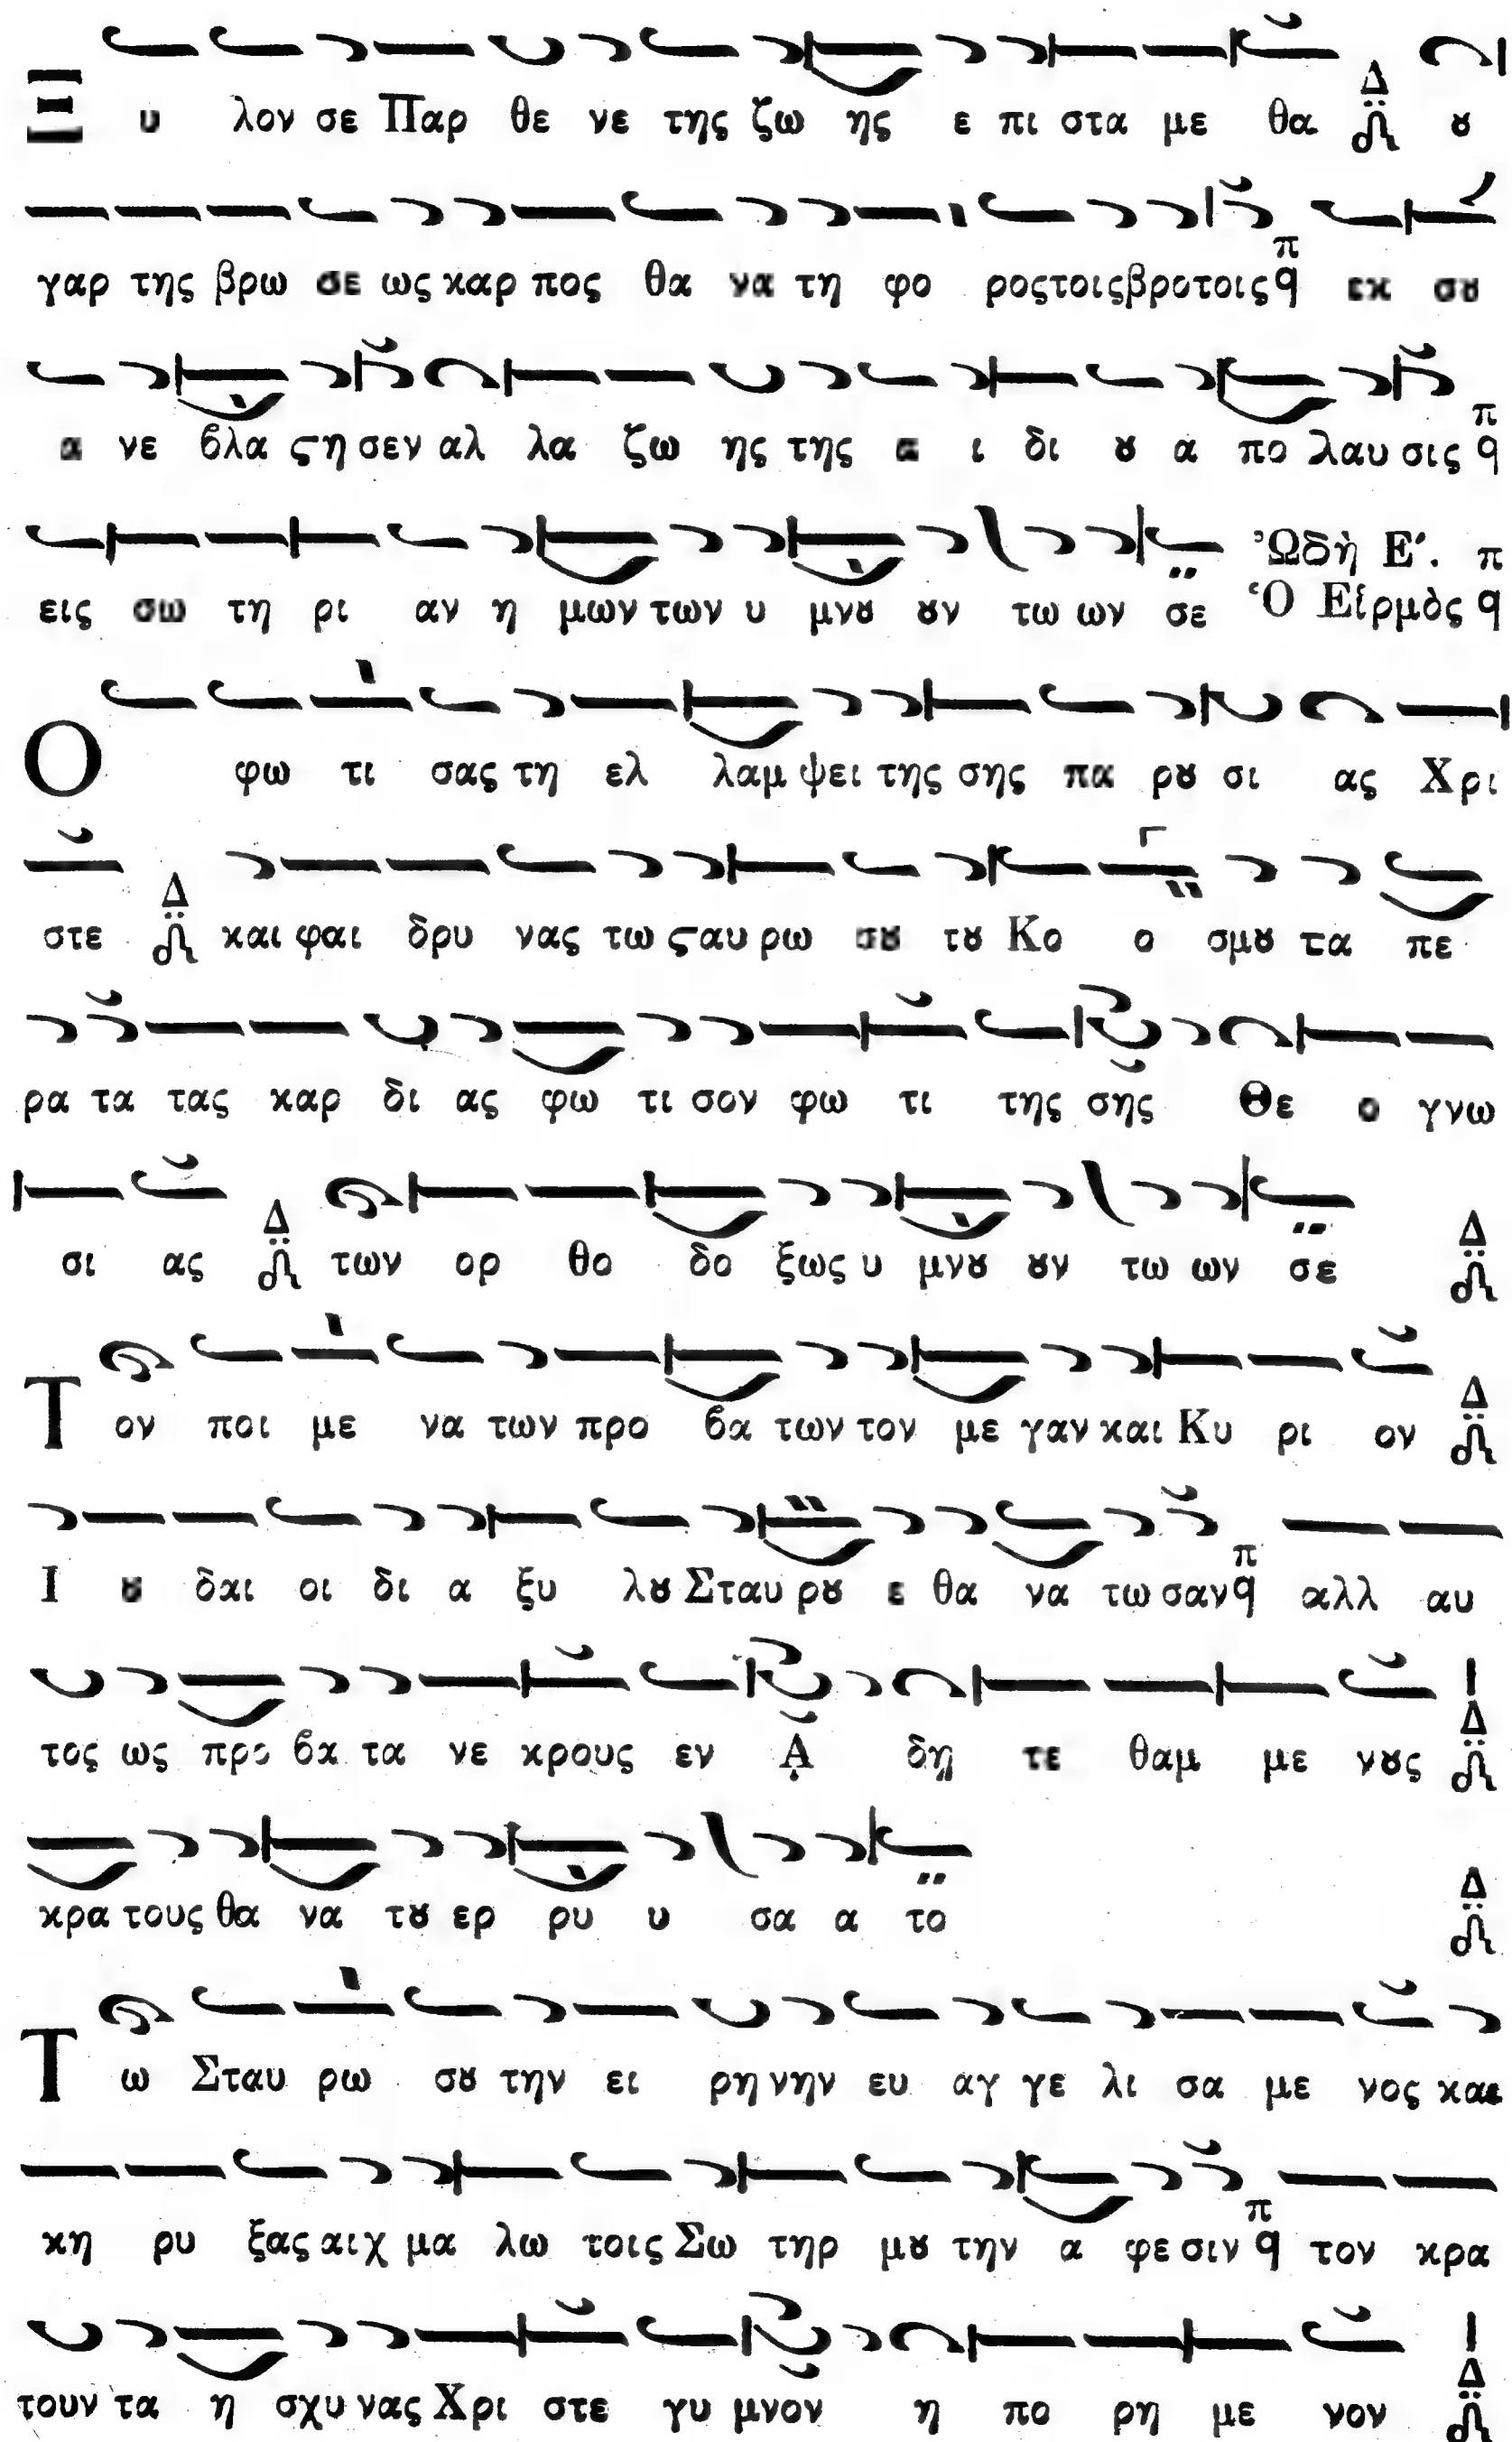 Ξ υ λον σε Παρ θε νε της ζω ης ε πι στα με θα Δ ȣ
γαρ της βρω σε ως καρ πος θα να τη φο ρος τοις βρο τοις π q εκ σȣ
α νε βλα ϛη σεν αλ λα ζω ης της α ι δι ȣ α πο λαυ σις π q
εις σω τη ρι αν η μων των υ μνȣ ȣν τω ων σε Ὠδὴ Ε΄. Ὁ Εἱρμὸς π q
Ο φω τι σας τη ελ λαμ ψει της σης πα ρȣ σι ας Χρι
στε Δ και φαι δρυ νας τω ϛαυ ρω σȣ τȣ Κο ο σμȣ τα πε
ρα τα τας καρ δι ας φω τι σον φω τι της σης Θε ο γνω
σι ας Δ των ορ θο δο ξως υ μνȣ ȣν τω ων σε Δ
Τ ον ποι με να των προ βα των τον με γαν και Κυ ρι ον Δ
Ι ȣ δαι οι δι α ξυ λȣ Σταυ ρȣ ε θα να τω σαν π q αλλ αυ
τος ως προ βα τα νε κρους εν ᾼ δῃ τε θαμ με νȣς Δ
κρα τους θα να τȣ ερ ρυ υ σα α το Δ
Τ ω Σταυ ρω σȣ την ει ρη νην ευ αγ γε λι σα με νος και
κη ρυ ξας αιχ μα λω τοις Σω τηρ μȣ την α φε σιν π q τον κρα
τουν τα η σχυ νας Χρι στε γυ μνον η πο ρη με νον Δ